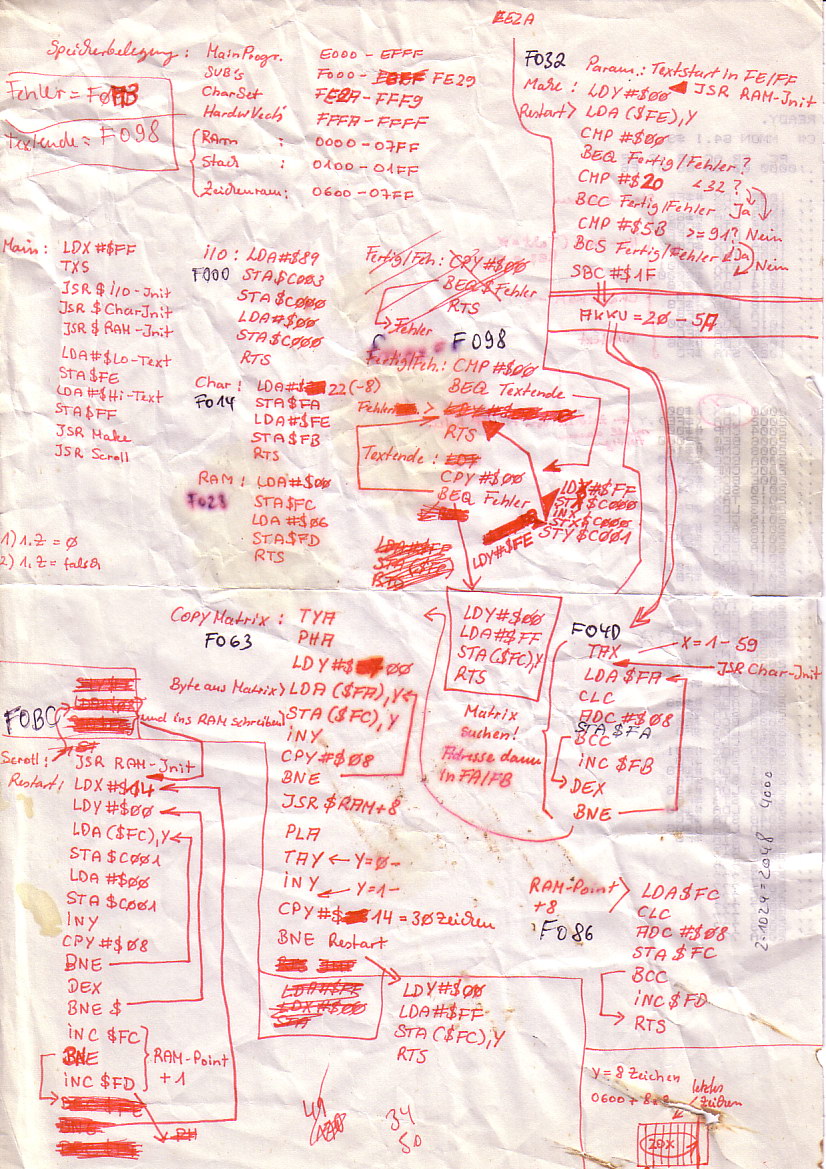 EE2A
Speicherbelegung : MainProgr. E000 - EFFF
SUB's F000 - FE29
CharSet FE2A - FFF9
HardwVect's FFFA - FFFF
RAM : 0000 - 07FF
Stack : 0100 - 01FF
Zeichenram : 0600 - 07FF
Fehler =
Textende = F098
F032 Param.: Textstart in FE/FF
Make : LDY #$00 JSR RAM-Jnit
Restart> LDA ($FE),Y
CMP #$00
BEQ Fertig/Fehler ?
CMP #$20 <32 ?
BCC Fertig/Fehler Ja
CMP #$5B >= 91? Nein
BCS Fertig/Fehler Ja
SBC #$1F Nein
AKKU = 20 - 5A
Main : LDX #$FF
TXS
JSR $ i/o-Jnit
JSR $ CharJnit
JSR $ RAM-Jnit
LDA #$Lo-Text
STA $FE
LDA #$Hi-Text
STA $FF
JSR Make
JSR Scroll
1) 1. Z = 0
2) 1. Z = falsch
i/o : LDA #$89
F000 STA $C003
STA $C000
LDA #$00
STA $C000
RTS
Char : LDA #$ 22 (-8)
F014 STA $FA
LDA #$FE
STA $FB
RTS
RAM : LDA #$00
F023 STA $FC
LDA #$06
STA $FD
RTS
Fertig/Feh.: CPY #$00
BEQ $ Fehler
RTS
Fehler
F098
Fertig/Feh.: CMP #$00
BEQ Textende
Fehler >
RTS
Textende :
CPY #$00
BEQ Fehler
LDX #$FF
STX $C000
INX
STX $C000
STY $C001
LDY #$FE
LDY #$00
LDA #$FF
STA ($FC),Y
RTS
COPY Matrix : TYA
F063 PHA
LDY #$ 00
Byte aus Matrix> LDA ($FA),Y
und ins RAM schreiben STA ($FC),Y
INY
CPY #$08
BNE
JSR $RAM+8
PLA
TAY ← Y=0-
INY ← Y=1-
CPY #$ 14 = 30 Zeichen
BNE Restart
LDY #$00
LDA #$FF
STA ($FC),Y
RTS
Matrix
suchen!
Adresse dann
in FA/FB
F04D
TAX X = 1 - 59
LDA $FA JSR Char-Jnit
CLC
ADC #$08
STA $FA
BCC
INC $FB
DEX
BNE
2·1024 = 2048 4000
F0BC
Scroll : JSR RAM-Jnit
Restart : LDX #$14
LDY #$00
LDA ($FC),Y
STA $C001
LDA #$00
STA $C001
INY
CPY #$08
BNE
DEX
BNE $
INC $FC
BNE RAM-Point
INC $FD +1
RAM-Point > LDA $FC
+8 CLC
F086 ADC #$08
STA $FC
BCC
INC $FD
RTS
49
34
50
Y = 8 Zeichen
letztes
Zeichen